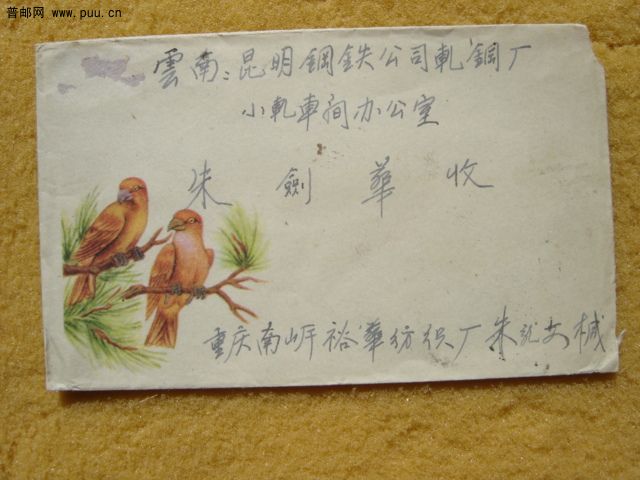 普邮网 www.puu.cn
雲南：昆明鋼鉄公司軋鋼厂
小軋車间办公室
朱 劍 華 收
重庆南岸裕華纺织厂朱 缄